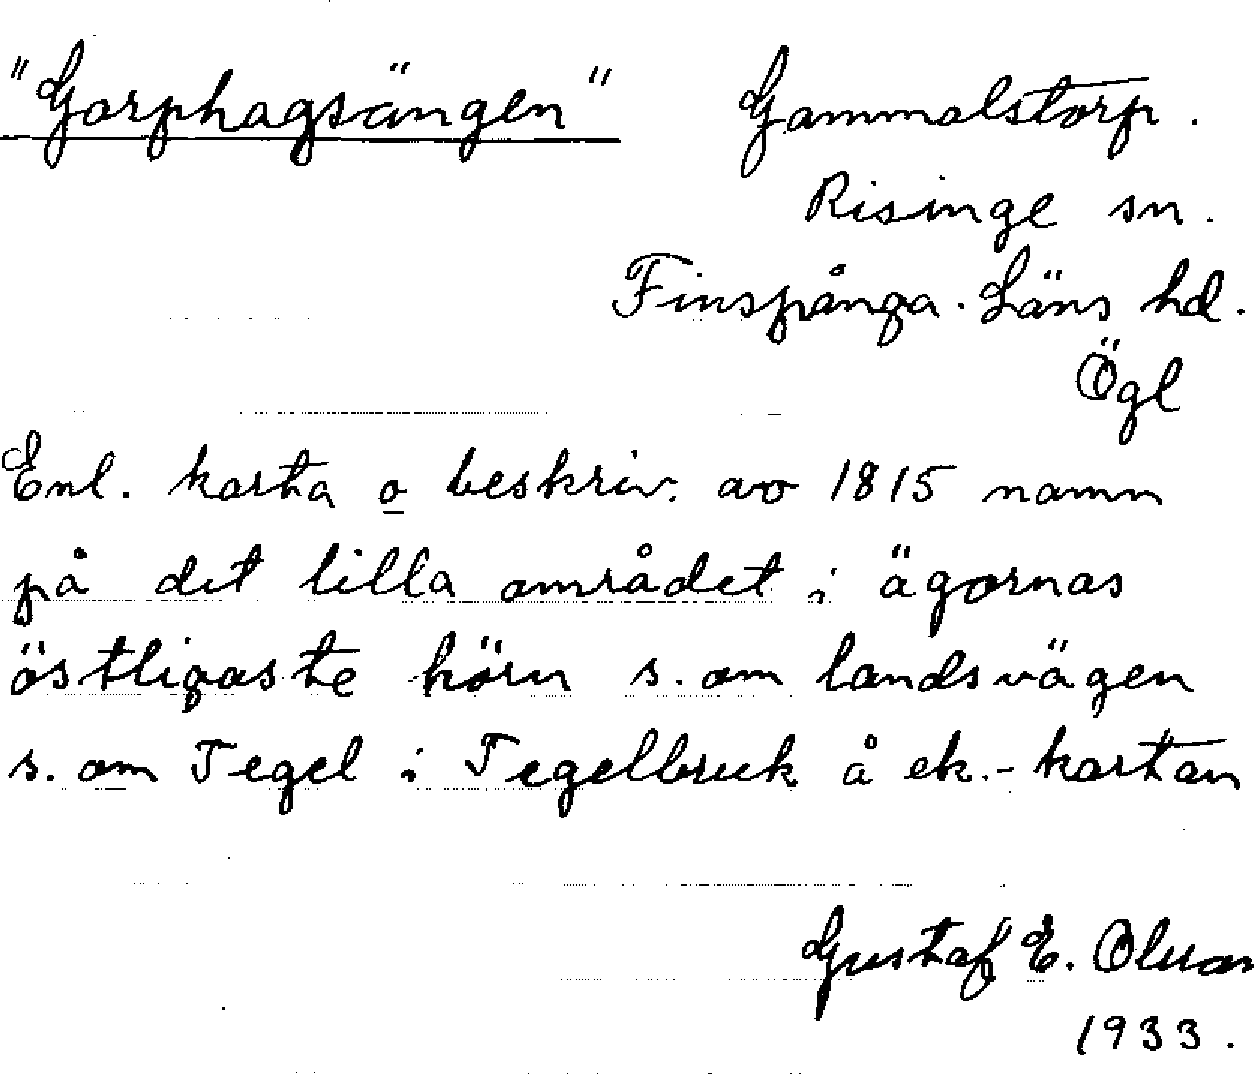 "Gorphagsängen" Gammalstorp.
Risinge sn.
Finspånga. Läns hd.
Ögl
Enl. karta o beskriv. av 1815 namn
på det lilla området i ägornas
östligaste hörn s. om landsvägen
s. om Tegel i Tegelbruk å ek.- kartan
Gustaf E. Olson
1933.